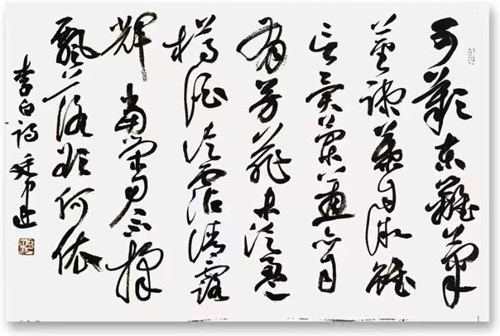 可歎東籬菊
莖疎葉且微雖
言異蘭蕙亦自
有芳菲未泛盈
樽酒徒沾清露
輝當榮君不採
飄落欲何依
李白詩